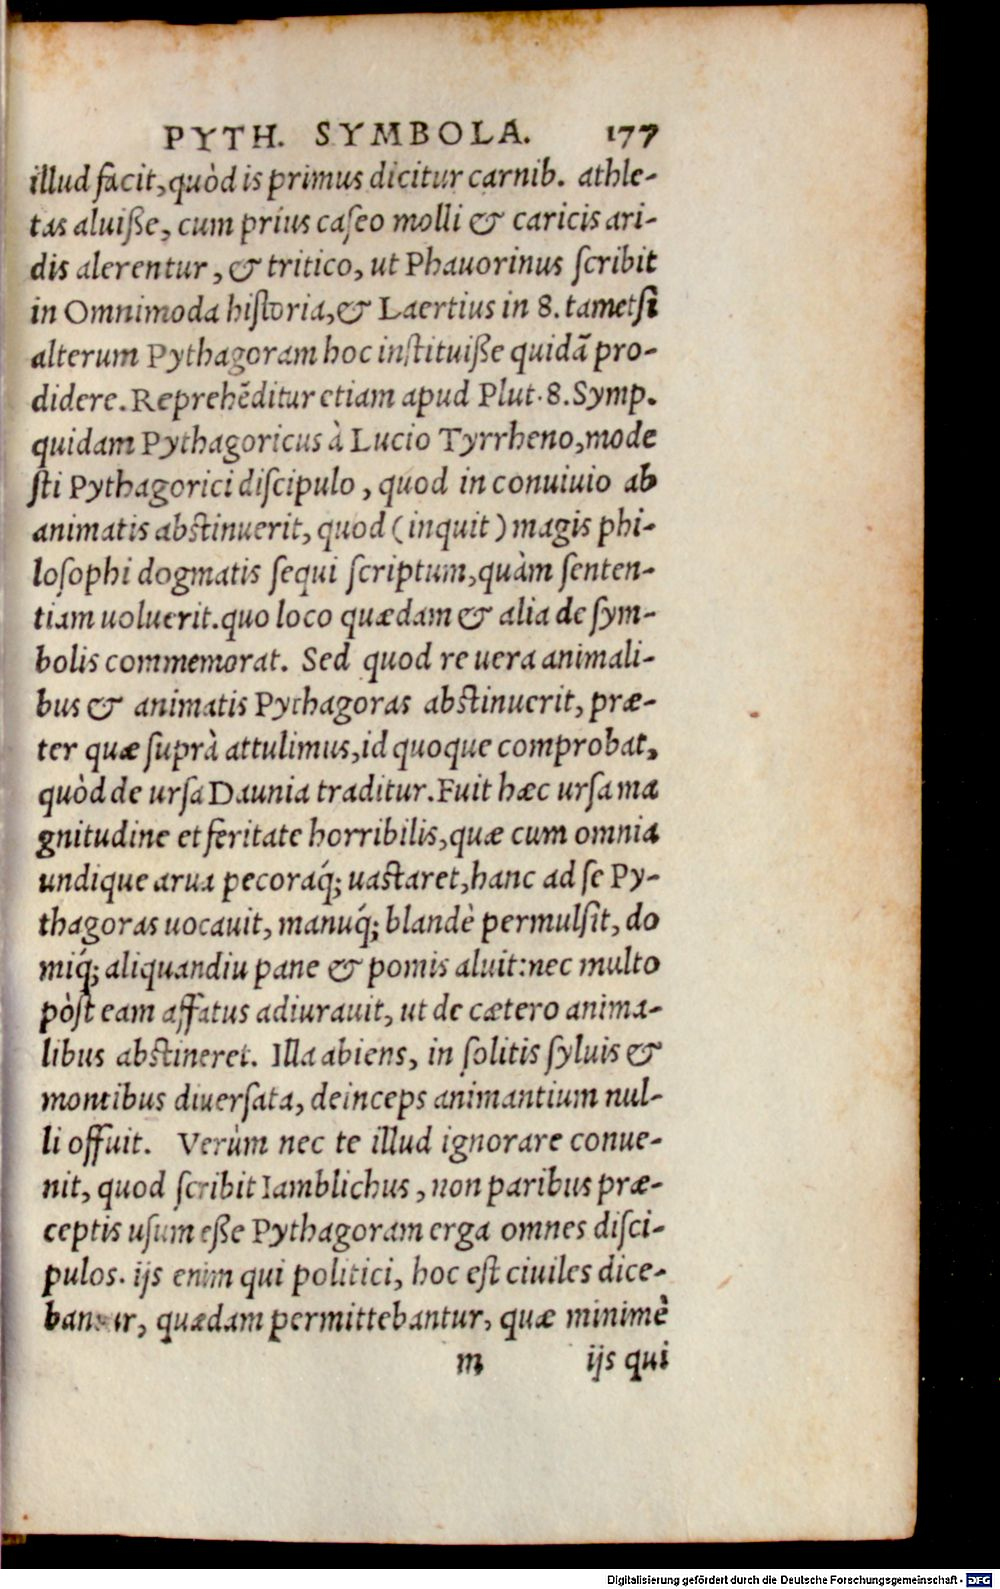 PYTH. SYMBOLA. 177
illud facit, quòd is primus dicitur carnib. athle-
tas aluiße, cum priús caſeo molli & caricis ari-
dis alerentur, & tritico, ut Phauorinus ſcribit
in Omnimoda hiſtoria, & Laertius in 8. tametſi
alterum Pythagoram hoc inſtituiße quidã pro-
didere. Reprehẽditur etiam apud Plut. 8. Symp.
quidam Pythagoricus à Lucio Tyrrheno, mode
ſti Pythagorici diſcipulo, quod in conuiuio ab
animatis abſtinuerit, quod (inquit) magis phi-
loſophi dogmatis ſequi ſcriptum, quàm ſenten-
tiam uoluerit. quo loco quædam & alia de ſym-
bolis commemorat. Sed quod re uera animali-
bus & animatis Pythagoras abſtinuerit, præ-
ter quæ ſuprà attulimus, id quoque comprobat,
quòd de urſa Daunia traditur. Fuit hæc urſa ma
gnitudine et feritate horribilis, quæ cum omnia
undique arua pecoraq́; uaſtaret, hanc ad ſe Py-
thagoras uocauit, manuq́; blandè permulſit, do
miq́; aliquandiu pane & pomis aluit: nec multo
pòſt eam affatus adiurauit, ut de cætero anima-
libus abſtineret. Illa abiens, in ſolitis ſyluis &
montibus diuerſata, deinceps animantium nul-
li offuit. Verùm nec te illud ignorare conue-
nit, quod ſcribit Iamblichus, non paribus præ-
ceptis uſum eße Pythagoram erga omnes diſci-
pulos. ijs enim qui politici, hoc eſt ciuiles dice-
bantur, quædam permittebantur, quæ minimè
m ijs qui
Digitalisierung gefördert durch die Deutsche Forschungsgemeinschaft - DFG